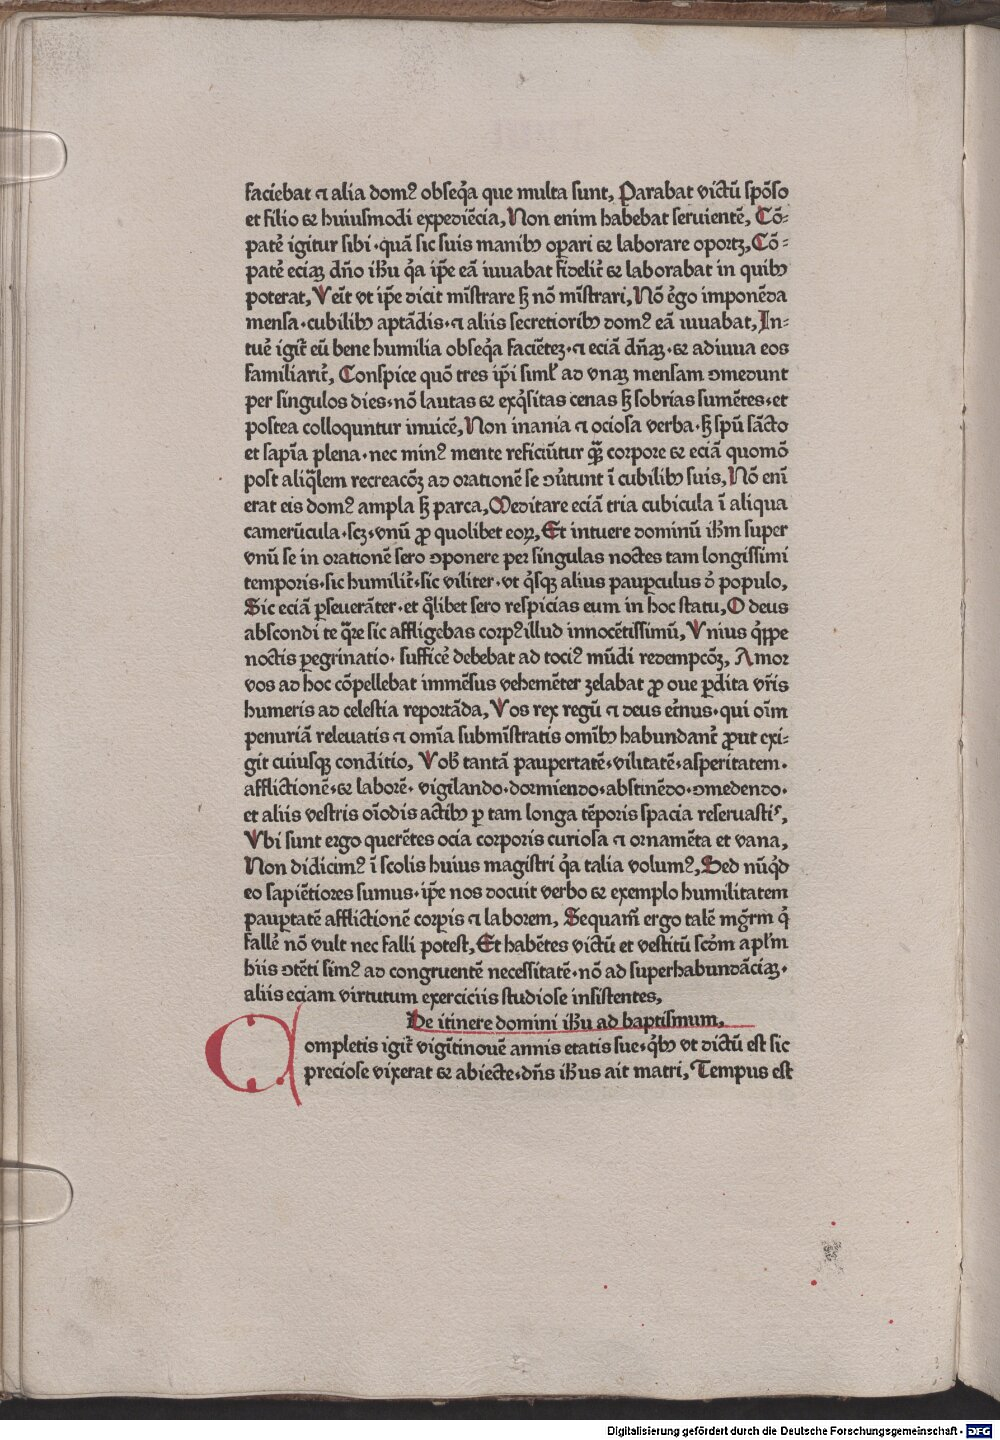 faciebat ⁊ alia domꝰ obseq̃a que multa sunt, Parabat victũ spõso
et filio ⁊ huiusmodi expediẽcia, Non enim habebat seruientẽ, Cõ-
patẽ igitur sibi·quã sic suis manibꝫ oꝑari ⁊ laborare oportꝫ, Cõ-
patẽ eciaꝫ dño ihũ q̃a ip̃e eã iuuabat fideliẽ ⁊ laborabat in quibꝫ
poterat, Veĩt vt ip̃e dicit mĩstrare sꝫ nõ mĩstrari, Nõ ẽgo imponẽda
mensa·cubilibꝫ aptãdis·⁊ aliis secretioribꝫ domꝰ eã iuuabat, In-
tuẽ igit̃ eũ bene humilia obseq̃a faciẽteꝫ·⁊ eciã dñaꝫ·⁊ adiuua eos
familiarit̃, Conspice quõ tres ip̃i simł ad vnaꝫ mensam ꝯmedunt
per singulos dies·nõ lautas ⁊ exq̃sitas cenas sꝫ sobrias sumẽtes·et
postea colloquntur inuicẽ, Non inania ⁊ ociosa verba·sꝫ spũ sãcto
et sapĩa plena·nec minꝰ mente reficiũtur q̃ꝫ corpore ⁊ eciã quomõ
post aliq̃lem recreacõꝫ ad orationẽ se ꝯũtunt ĩ cubilibꝫ suis, Nõ enĩ
erat eis domꝰ ampla sꝫ parca, Meditare eciã tria cubicula ĩ aliqua
camerũcula·scꝫ·vnũ ꝓ quolibet eoꝝ, Et intuere dominũ ihm̃ super
vnũ se in orationẽ sero ꝯponere per singulas noctes tam longissimi
temporis·sic humilit̃·sic viliter·vt q̃sqꝫ alius pauꝑculus õ populo,
Sic eciã ꝑseuerãter·et q̃libet sero respicias eum in hoc statu, O deus
abscondi te q̃re sic affligebas corpꝰ illud innocẽtissimũ, Vnius q̃ppe
noctis ꝑegrinatio·sufficẽ debebat ad tociꝰ mũdi redempcõꝫ, Amor
vos ad hoc cõpellebat immẽsus vehemẽter zelabat ꝓ oue ꝑdita vr̃is
humeris ad celestia reportãda, Vos rex regũ ⁊ deus et̃nus·qui oĩm
penuriã releuatis ⁊ omĩa submĩstratis omĩbꝫ habundant̃ ꝓut exi-
git cuiusqꝫ conditio, Vob̃ tantã paupertatẽ·vilitatẽ·asperitatem·
afflictionẽ·⁊ laborẽ·vigilando·dormiendo·abstinẽdo·ꝯmedendo·
et aliis vestris oĩodis actibꝫ ꝑ tam longa tẽporis spacia reseruastis,
Vbi sunt ergo querẽtes ocia corporis curiosa ⁊ ornamẽta et vana,
Non didicimꝰ ĩ scolis huius magistri q̃a talia volumꝰ, Sed nũq̃d
eo sapiẽtiores sumus·ip̃e nos docuit verbo ⁊ exemplo humilitatem
pauꝑtatẽ afflictionẽ corꝑis ⁊ laborem, Sequam̃ ergo talẽ mg̃rm q̃
fallẽ nõ vult nec falli potest, Et habẽtes victũ et vestitũ scõm apłm
hiis ꝯtẽti simꝰ ad congruentẽ necessitatẽ·nõ ad superhabundãciaꝫ·
aliis eciam virtutum exerciciis studiose insistentes,
De itinere domini ihũ ad baptismum,
Completis igit̃ vigĩtinouẽ annis etatis sue·q̃bꝫ vt dictũ est sic
preciose vixerat ⁊ abiecte·dñs ihũs ait matri, Tempus est
Digitalisierung gefördert durch die Deutsche Forschungsgemeinschaft - DFG